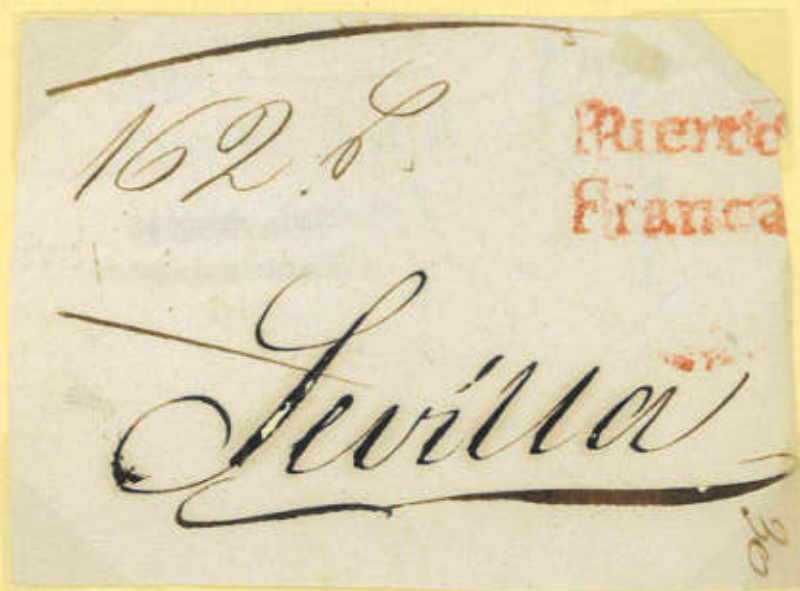 162. L.
Puerto
Franca
Sevilla
30